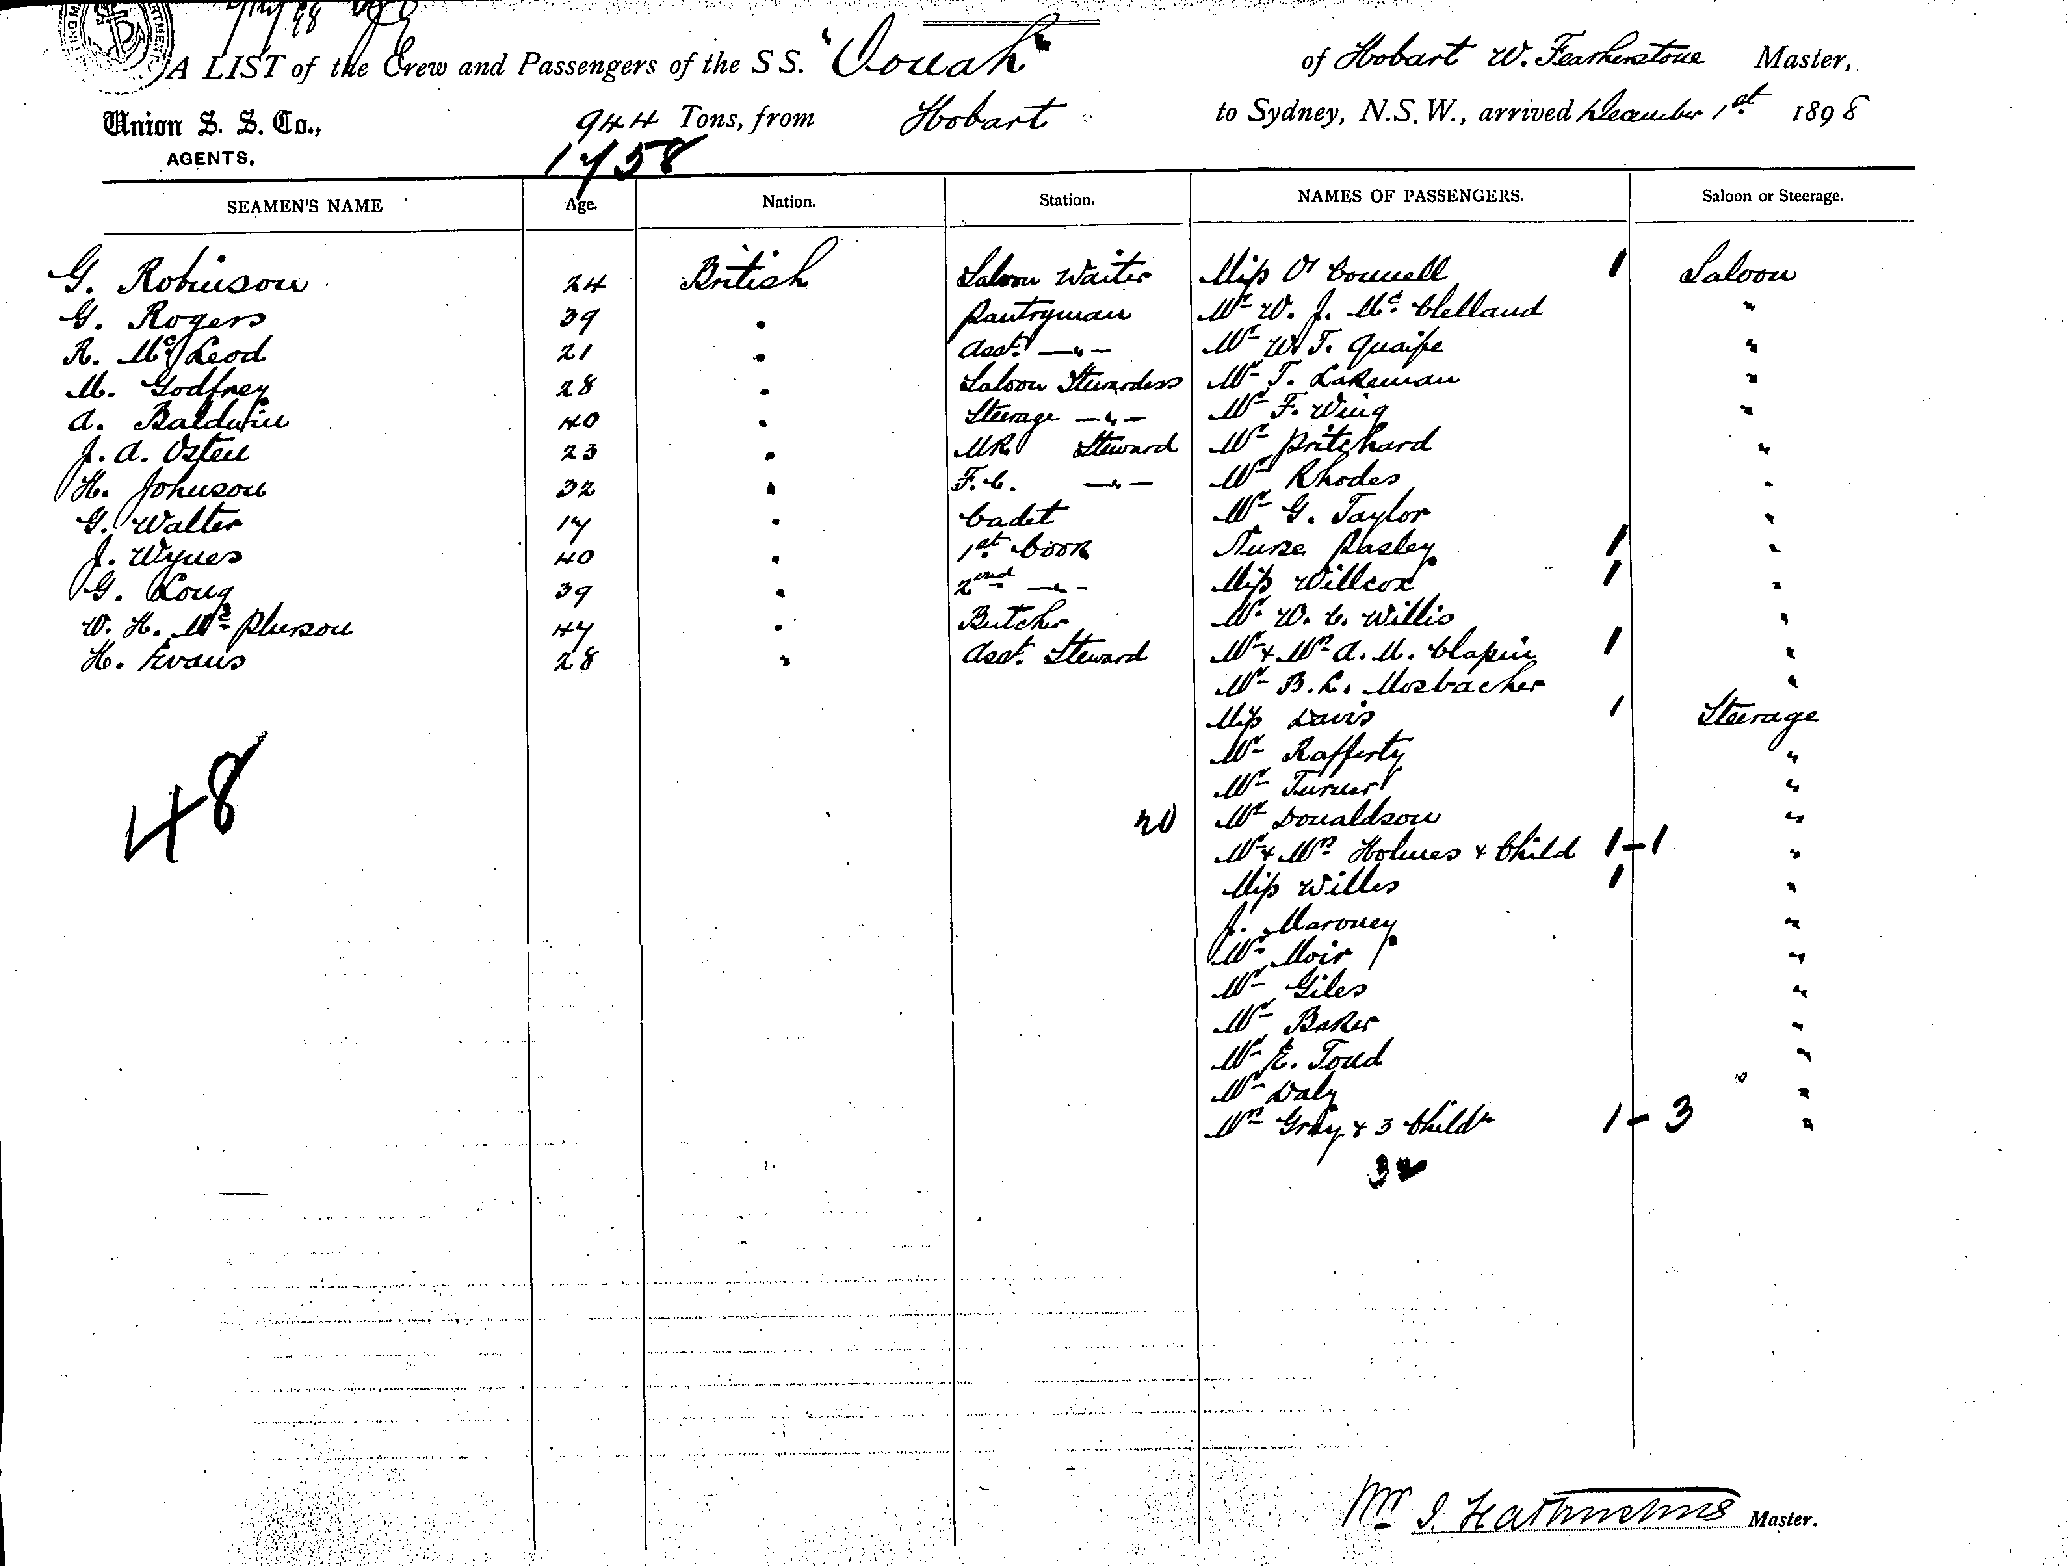 A LIST of the Crew and Passengers of the S S. "Oonah" of Hobart W. Featherstone Master,
Union S. S. Co., 944 Tons, from Hobart to Sydney, N.S.W., arrived December 1st 1898
AGENTS. 1758
SEAMEN'S NAME Age. Nation. Station. NAMES OF PASSENGERS. Saloon or Steerage.
G. Robinson 24 British Saloon Waiter Miss O'Connell 1 Saloon
G. Rogers 39 " Pantryman Mr W. J. McClelland "
R. McLeod 21 " Asst. —"— Mr W. T. Quaife "
M. Godfrey 28 " Saloon Stewardess Mr T. Lakeman "
A. Baldwin 40 " Steerage —"— Mr F. Wing "
J. A. Osten 23 " MR. Steward Mr Pritchard "
H. Johnson 32 " F.C. —"— Mr Rhodes "
G. Walter 17 " Cadet Mr G. Taylor "
J. Wynes 40 " 1st Cook Nurse Pasley 1 "
G. Long 39 " 2nd —"— Miss Willcox 1 "
W. H. McPherson 47 " Butcher Mr W. C. Willis "
H. Evans 28 " Asst. Steward Mr & Mrs A. M. Clapin 1 "
Mr B. L. Mosbacher "
Miss Davis 1 Steerage
Mr Rafferty "
Mr Turner "
48 20 Mr Donaldson "
Mr & Mrs Holmes & Child 1-1 "
Miss Willes 1 "
J. Maroney "
Mr Moir "
Mr Giles "
Mr Baker "
Mr E. Toud "
Mr Daly "
Mrs Gray & 3 Childn 1-3 "
32
Master.